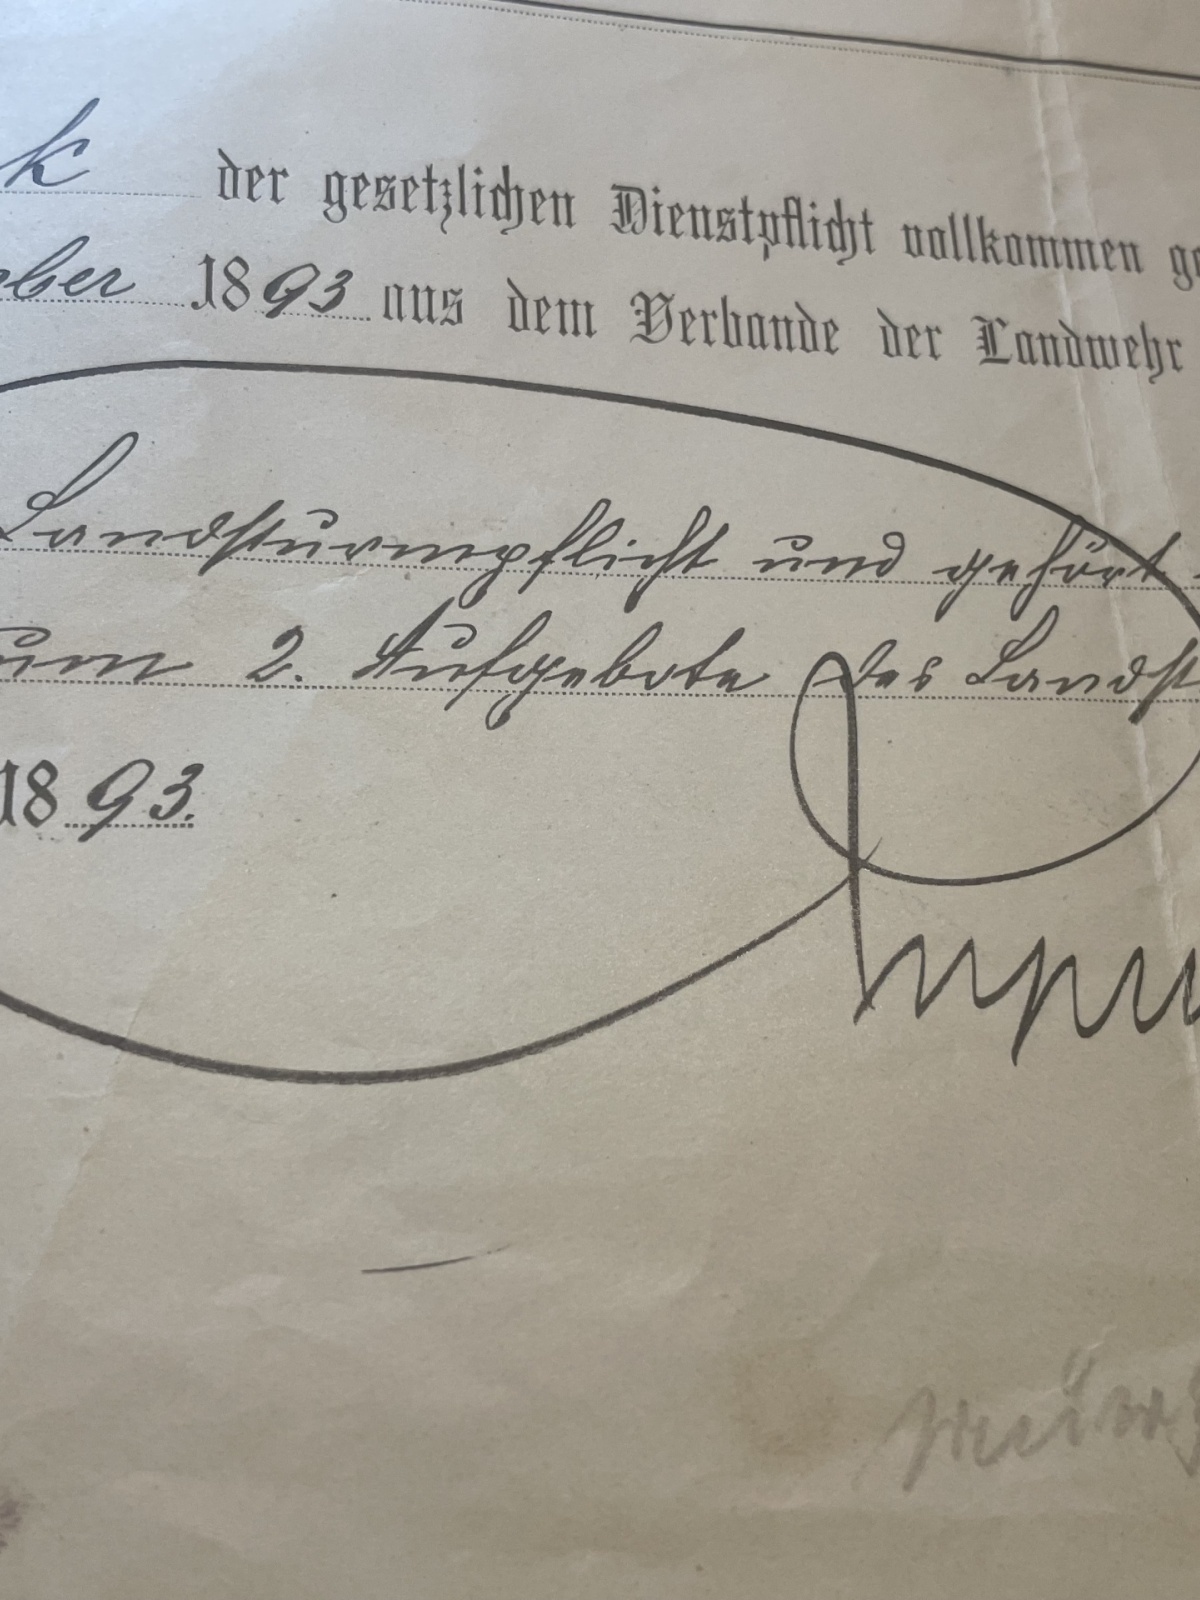 k der gesetzlichen Dienstpflicht vollkommen ge
ober 1893 aus dem Verbande der Landwehr
Landsturmpflicht und gehört
um 2. Aufgebote des Landst
1893.